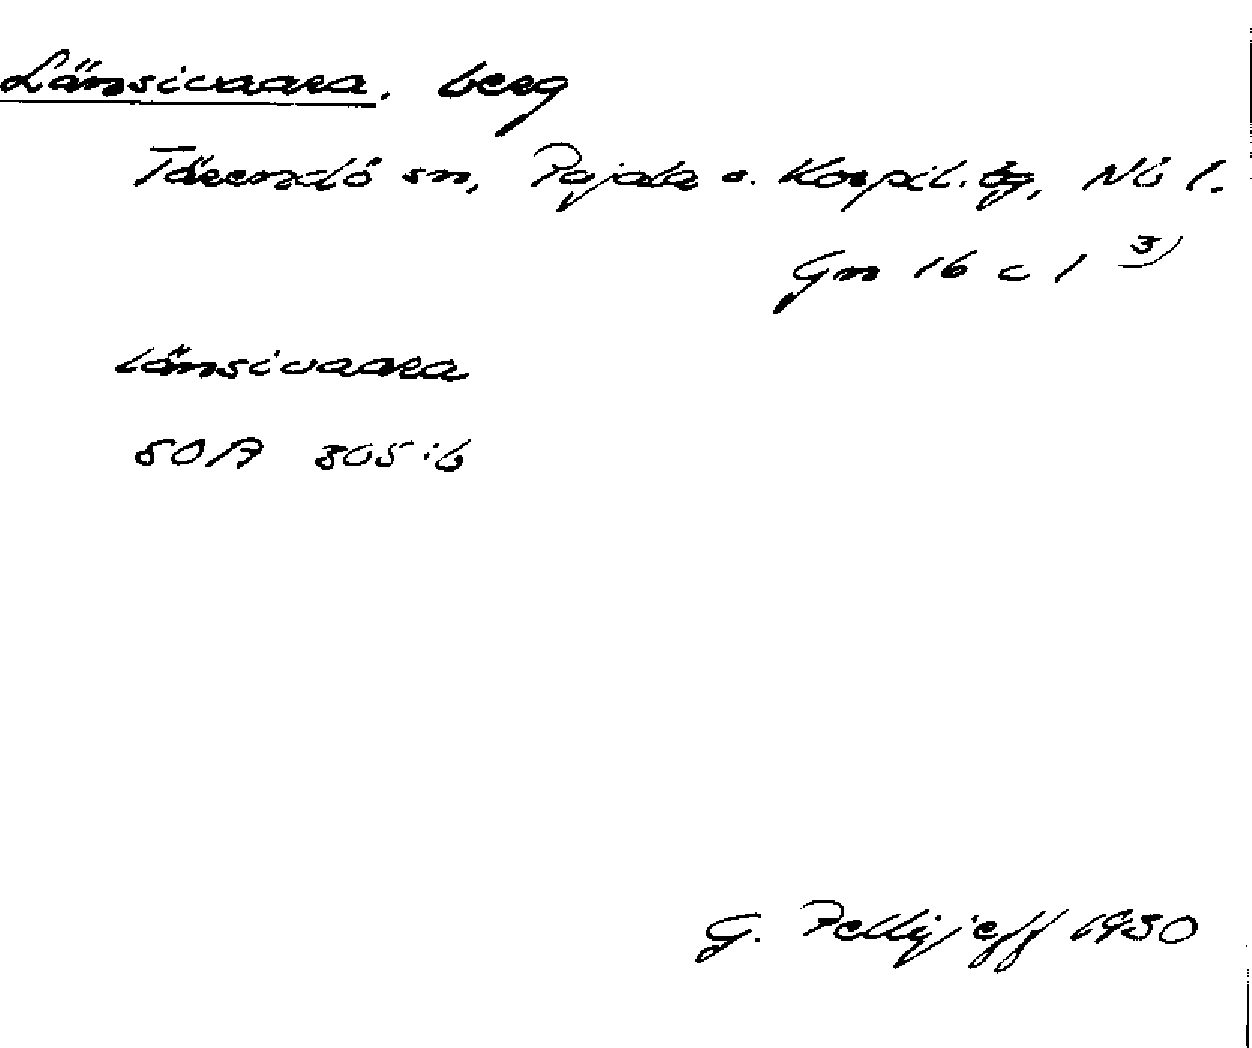 Länsivaara, berg
Tärendö sn, Pajala o. Korpil. tg, Nb l.
Gm 16 c 1 3)
länsivaara
SOA 305:6
G. Pellijeff 1950